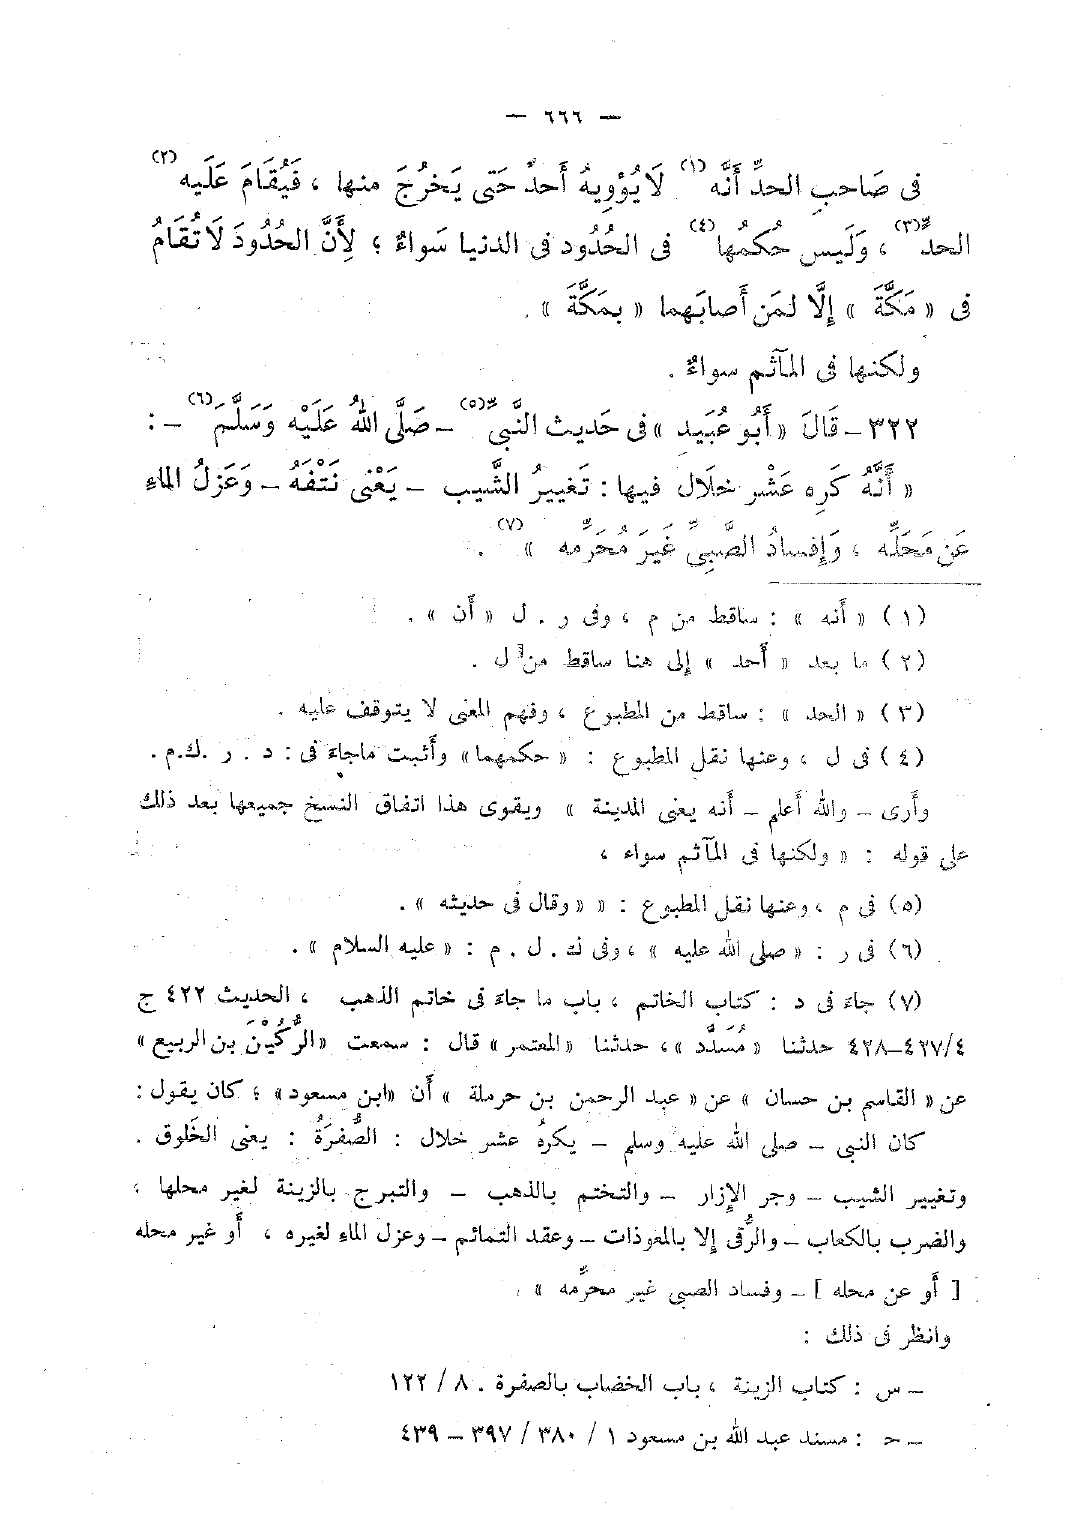 — ٦٦٦ —
فى صَاحبِ الحدِّ أَنَّه (١) لَا يُؤوِيهُ أَحدٌ حَتى يَخرُجَ منها ، فَيُقَامَ عَلَيه (٢)
الحدّ (٣) ، وَلَيس حُكمُها (٤) فى الحُدُود فى الدنيا سَواءٌ ؛ لِأَنَّ الحُدُودَ لَا تُقَامُ
فى « مَكَّةَ » إِلَّا لمَن أَصابَهما « بمَكَّةَ » .
ولكنها فى المآثم سواءٌ .
٣٢٢ – قَالَ « أَبُو عُبَيد » فى حَديث النَّبى (٥) – صَلَّى اللهُ عَلَيْه وَسَلَّمَ (٦) – :
« أَنَّهُ كَرِه عَشْر خلَال فيها : تَغييرُ الشَّيب – يَعْنى نَتْفَهُ – وَعَزلُ الماءِ
عَن مَحَلّه ، وَإِفسادُ الصَّبِىِّ غَيرَ مُحَرِّمه » (٧) .
(١) « أَنه » : ساقط من م ، وفى ر . ل « أَن » .
(٢) ما بعد « أَحد » إلى هنا ساقط من ل .
(٣) « الحد » : ساقط من المطبوع ، وفهم المعنى لا يتوقف عليه .
(٤) فى ل ، وعنها نقل المطبوع : « حكمهما » وأَثبت ماجاءَ فى : د . ر .ك.م .
وأَرى – والله أَعلم – أَنه يعنى المدينة » ويقوى هذا اتفاق النسخ جميعها بعد ذلك
على قوله : « ولكنها فى المآثم سواء ،
(٥) فى م ، وعنها نقل المطبوع : « « وقال فى حديثه » .
(٦) فى ر : « صلى الله عليه » ، وفى ك . ل . م : « عليه السلام » .
(٧) جاءَ فى د : كتاب الخاتم ، باب ما جاءَ فى خاتم الذهب ، الحديث ٤٢٢ ج
٤/٤٢٧–٤٢٨ حدثنا « مُسَدَّد » ، حدثنا « المعتمر » قال : سمعت « الرُّكَيْنَ بن الربيع »
عن « القاسم بن حسان » عن « عبد الرحمن بن حرملة » أَن « ابن مسعود » ؛ كان يقول :
كان النبى – صلى الله عليه وسلم – يكرهُ عشر خلال : الصُّفرَةُ : يعنى الخَلوق .
وتغيير الشيب – وجر الإِزار – والتختم بالذهب – والتبرج بالزينة لغير محلها ،
والضرب بالكعاب – والرُّقى إلا بالمعوذات – وعقد التمائم – وعزل الماءِ لغيره ، أَو غير محله
[ أَو عن محله ] – وفساد الصبى غير محرِّمه » .
وانظر فى ذلك :
– س : كتاب الزينة ، باب الخضاب بالصفرة . ٨ / ١٢٢
– حـ : مسند عبد الله بن مسعود ١ / ٣٨٠ / ٣٩٧ – ٤٣٩